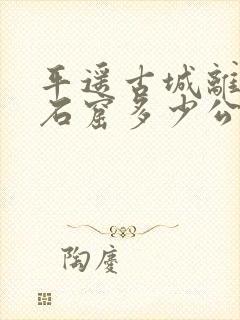 平遥古城離
石窟多少公
陶慶